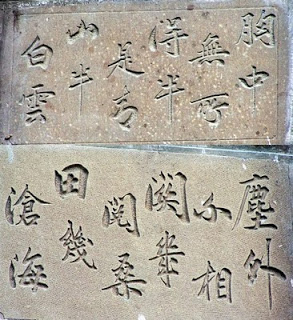 胸中
無所
得半
是青
山半
白雲
塵外
不相
關幾
閱桑
田幾
滄海